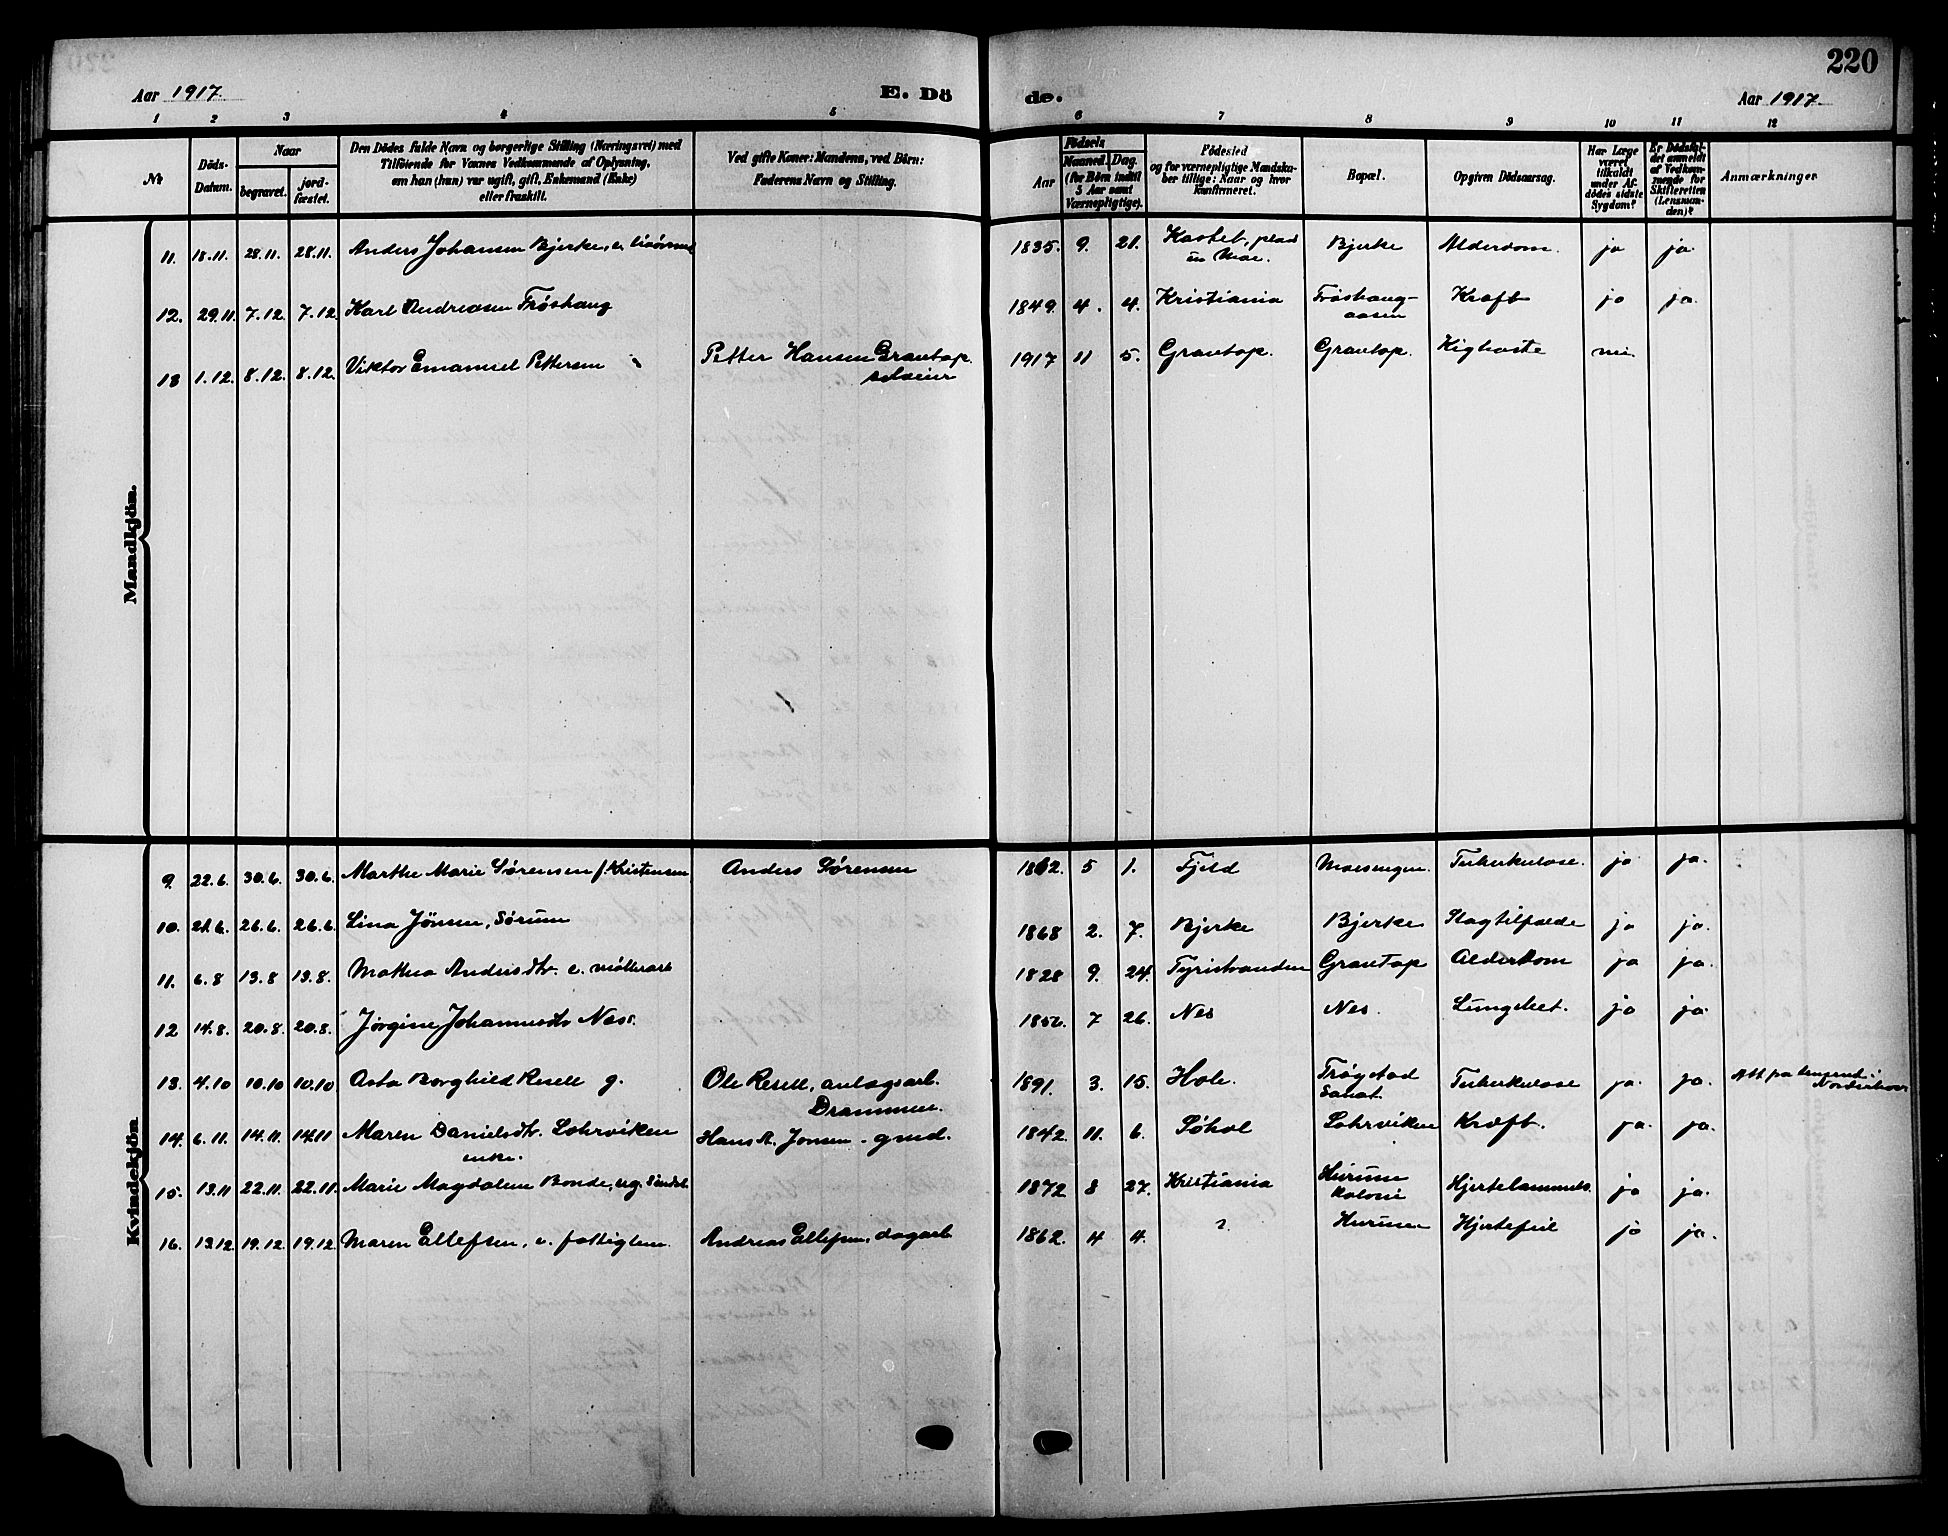 220
Aar 1917.
E. Dö
de.
Aar 1917
1 2 3 4 5 6 7 8 9 10 11 12
No
Döds-
Datum.
Naar
begravet.
jord-
fæstet.
Den Dödes fulde Navn og borgerlige Stilling (Næringsvei) med
Tilföiende for Voxnes Vedkommende af Oplysning,
om han (hun) var ugift, gift, Enkemand (Enke)
eller fraskilt.
Ved gifte Koner: Mandens, ved Börn:
Faderens Navn og Stilling.
Födsels
Aar
Maaned. Dag.
(for Börn indtil
5 Aar samt
Værnepligtige).
Födested
og for værnepligtige Mandska-
ber tillige: Naar og hvor
konfirmeret.
Bopæl.
Opgiven Dödsaarsag.
Har Læge
været
tilkaldt
under Af-
dödes sidste
Sygdom?
Er Dödsfal-
det anmeldt
af Vedkom-
mende for
Skifteretten
(Lensman-
den)?
Anmærkninger
Mandkjön.
11. 18.11. 28.11. 28.11. Anders Johansen Bjerke, e. 1835. 9. 21. Kastet, plads Bjerke Alderdom. ja ja
un Moe.
12. 29.11. 7.12. 7.12. Karl Andreasen Frøshaug 1849. 4. 4. Kristiania Frøshaug- Kræft ja ja.
aasen
13 1.12. 8.12. 8.12. Viktor Emanuel Pettersen Petter Hansen Grantop. 1917 11 5. Grantop. Grantop. Kighoste nei
selveier
Kvindekjön
9. 22.6. 30.6. 30.6. Marthe Marie Sørensen f. Kristensen Anders Sørensen 1862. 5 1. Fjeld Moesengen. Tuberkulose. ja ja.
10. 21.6. 26.6. 26.6. Lina Jönsen, Sørum 1868 2. 7. Bjerke Bjerke Slagtilfælde ja ja.
11. 6.8 13.8 13.8. Mathea Andersdtr. e. 1828 9. 24. Tyristranden Grantop Alderdom ja ja.
12 14.8. 20.8. 20.8. Jørgine Johannesdtr Næss. 1856. 7 26. Nes Nes. Lungebet. ja ja.
13. 4.10 10.10 10.10 Asta Borghild Resell g. Ole Resell, anlægsarb. 1891. 3. 15. Hole. Frøystad Tuberkulose ja. ja.
Drammen. Sanat. Norderhov
14. 6.11. 14.11. 14.11 Maren Danielsdtr. Lohrviken Hans A. Jonsen - gmd. 1842. 11. 6. Søhol Lohrviken Kræft. ja. ja.
enke.
15. 13.11 22.11. 22.11. Marie Magdalene Bonde, ug. 1872 8 27. Kristiania Hurum Hjertelammels. ja ja.
koloni
16. 13.12 19.12 19.12 Maren Ellefsen, e. fattiglem. Andreas Ellefsen, dagarb 1862. 4 4. ? Hurum Hjertefeil ja ja.